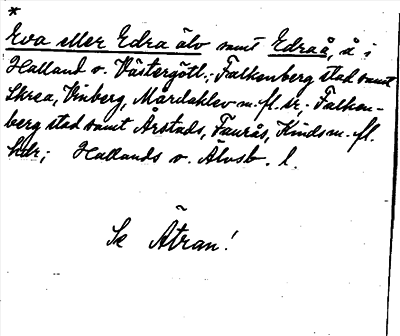 *
Eva eller Edra älv samt Edraå, å i
Halland o. Västergötl.; Falkenberg stad samt
Skrea, Vinberg, Mårdaklev m. fl. sr, Falken-
berg stad samt Årstads, Faurås, Kinds m. fl.
hdr; Hallands o. Älvsb. l.
Se Ätran!